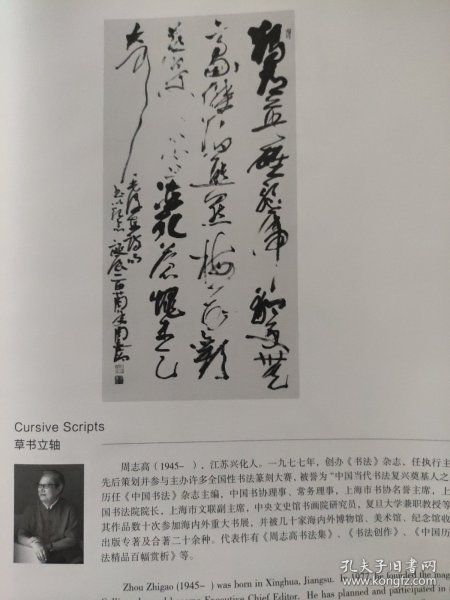 独有英雄驱虎豹更无
豪杰怕熊罴梅花欢
奇
Cursive Scripts
草书立轴
周志高（1945- ），江苏兴化人。一九七七年，创办《书法》杂志，任执行主
先后策划并参与主办许多全国性书法篆刻大赛，被誉为“中国当代书法复兴奠基人之
历任《中国书法》杂志主编，中国书协理事、常务理事，上海市书协名誉主席，上
国书法院院长，上海市文联副主席，中央文史馆书画院研究员，复旦大学兼职教授等
其作品数十次参加海内外重大书展，并被几十家海内外博物馆、美术馆、纪念馆收
出版专著及合著二十余种。代表作有《周志高书法集》、《书法创作》、《中国历
法精品百幅赏析》等。
Zhou Zhigao (1945- ) was born in Xinghua, Jiangsu. In 1977 he founded the mag
Executive Chief Editor. He has planned and participated in
孔夫子旧书网